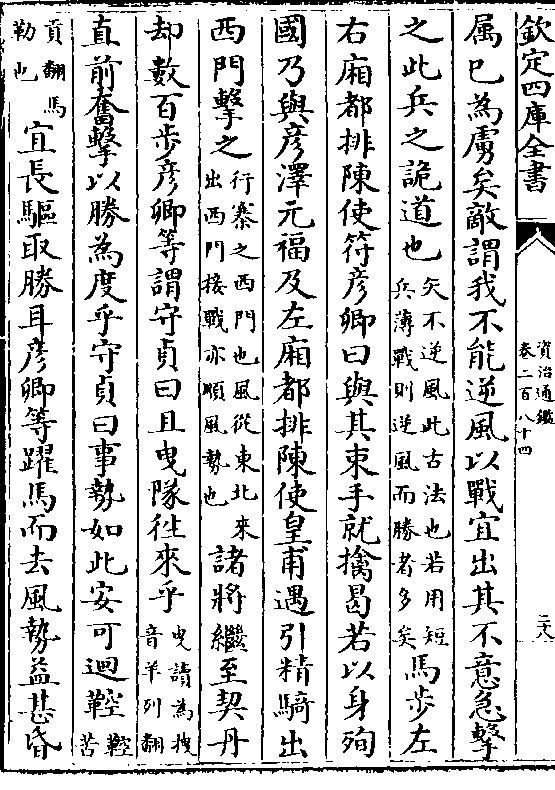 欽定四庫全書
資治通鑑
卷二百八十四
二八
属巳為虜矣敵謂我不能逆風以戰宜出其不意急擊
之此兵之詭道也矢不逆風此古法也若用短兵薄戰則逆風而勝者多矣馬步左
右廂都排陳使符彦卿曰與其束手就擒曷若以身殉
國乃與彦澤元福及左廂都排陳使皇甫遇引精騎出
西門擊之行寨之西門也風從東北來出西門接戰亦順風勢也諸將繼至契丹
却數百步彦卿等謂守貞曰且曳隊徃來乎曳讀為拽音羊列翻
直前奮擊以勝為度乎守貞曰事勢如此安可迴鞚鞚苦
貢翻馬勒也宜長驅取勝耳彦卿等躍馬而去風勢益甚昏